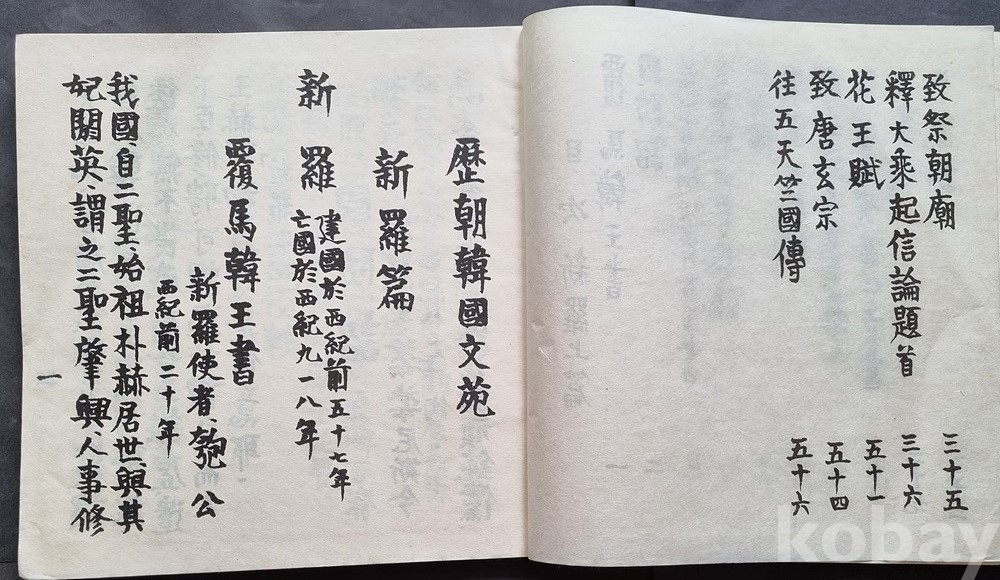 致祭朝廟 三十五
釋大乘起信論題首 三十六
花王賦 五十一
致唐玄宗 五十四
往五天竺國傳 五十六
歷朝韓國文苑
新羅篇
新羅
建國於西紀前五十七年
亡國於西紀九一八年
覆馬韓王書
新羅使者、匏公
西紀前二十年
我國、自二聖、始祖朴赫居世、與其
妃閼英、謂之二聖肇興、人事修
一
kobay